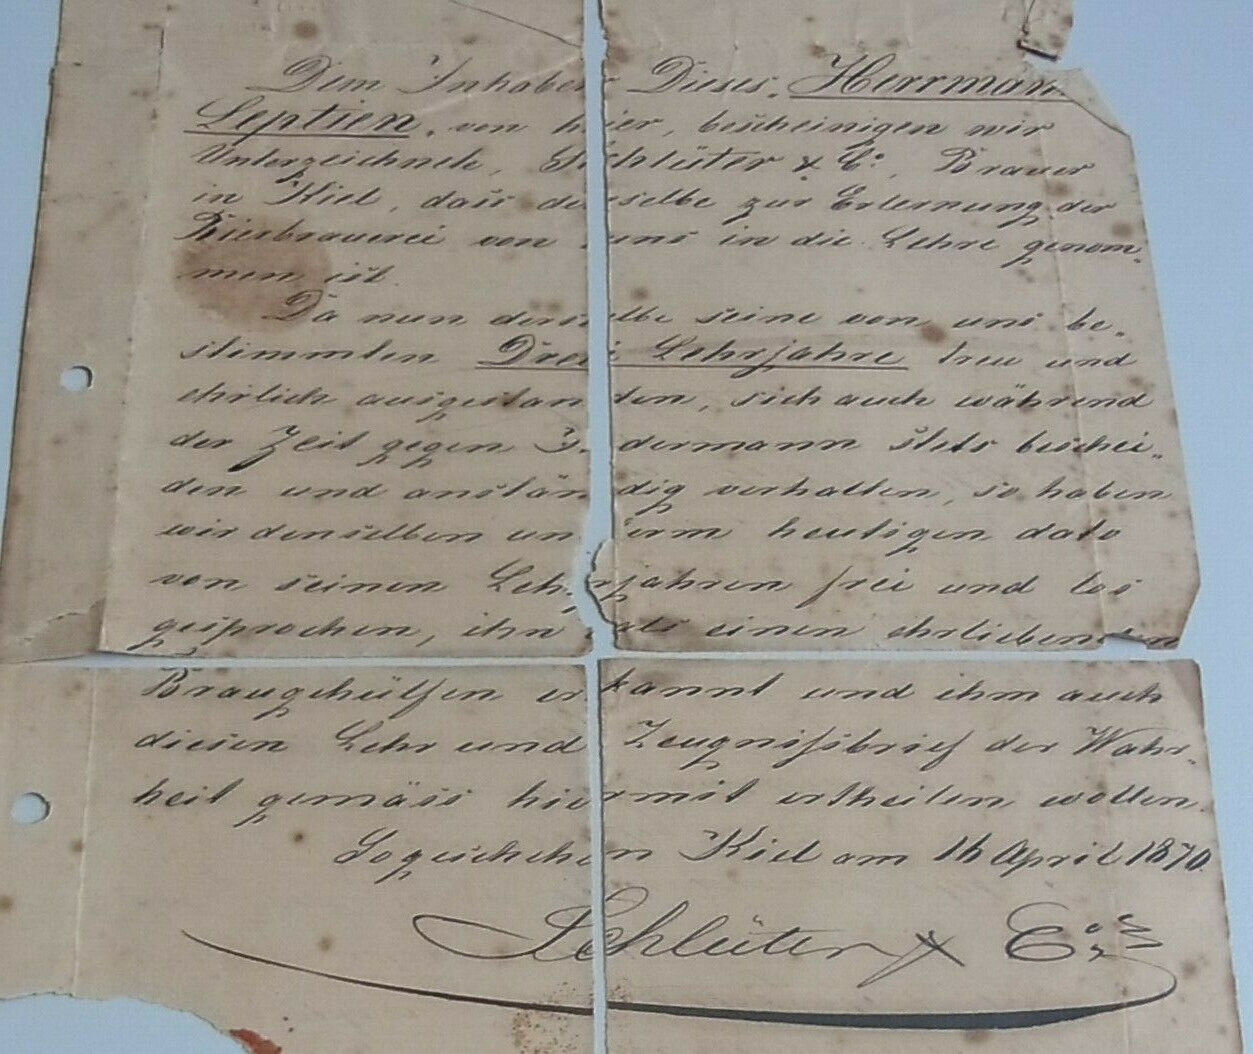 Dem Inhaber Dieses, Herrman
Septien, von hier, bescheinigen wir
Unterzeichnete, Schlüter & Co, Brauer
in Kiel, dass derselbe zur Erlernung der
Bierbrauerei von uns in die Lehre genom-
men ist.
Da nun derselbe seine von uns be-
stimmten Drei Lehrjahre treu und
ehrlich ausgestanden, sich auch während
der Zeit gegen Jedermann stets beschei-
den und anständig verhalten, so haben
wir denselben unterm heutigen dato
von seinen Lehrjahren frei und los
gesprochen, ihn als einen ehrliebenden
Braugehülfen erkannt und ihm auch
diesen Lehr und Zeugnißbrief der Wahr-
heit gemäss hiermit ertheilen wollen.
So geschehen Kiel am 16 April 1870.
Schlüter & Co